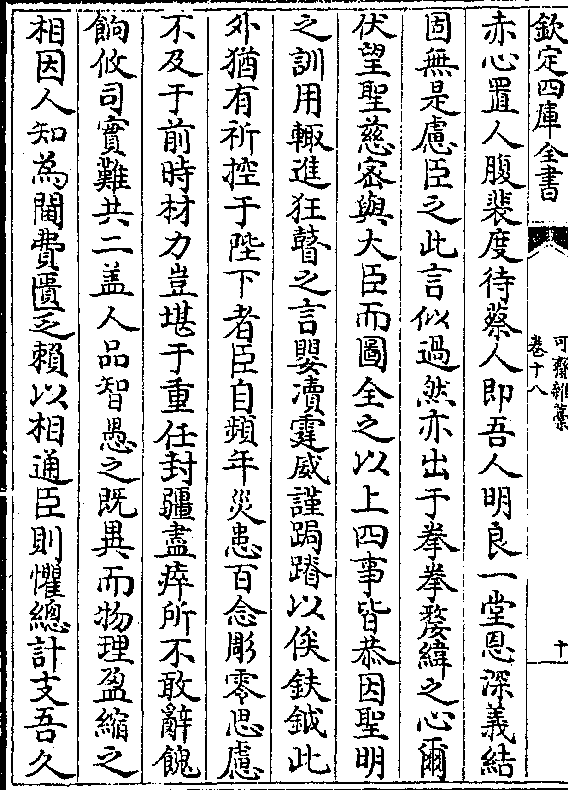 欽定四庫全書
可齋雜藁
卷十八
十
赤心置人腹裴度待蔡人即吾人明良一堂恩深義結
固無是慮臣之此言似過然亦出于拳拳嫠緯之心爾
伏望聖慈密與大臣而圖全之以上四事皆恭因聖明
之訓用輙進狂瞽之言嬰瀆霆威謹跼蹐以俟鈇鉞此
外猶有祈控于陛下者臣自頻年災患百念彫零思慮
不及于前時材力豈堪于重任封疆盡瘁所不敢辭餽
餉攸司實難共二盖人品智愚之既異而物理盈縮之
相因人知為閫費匱乏賴以相通臣則懼總計支吾久